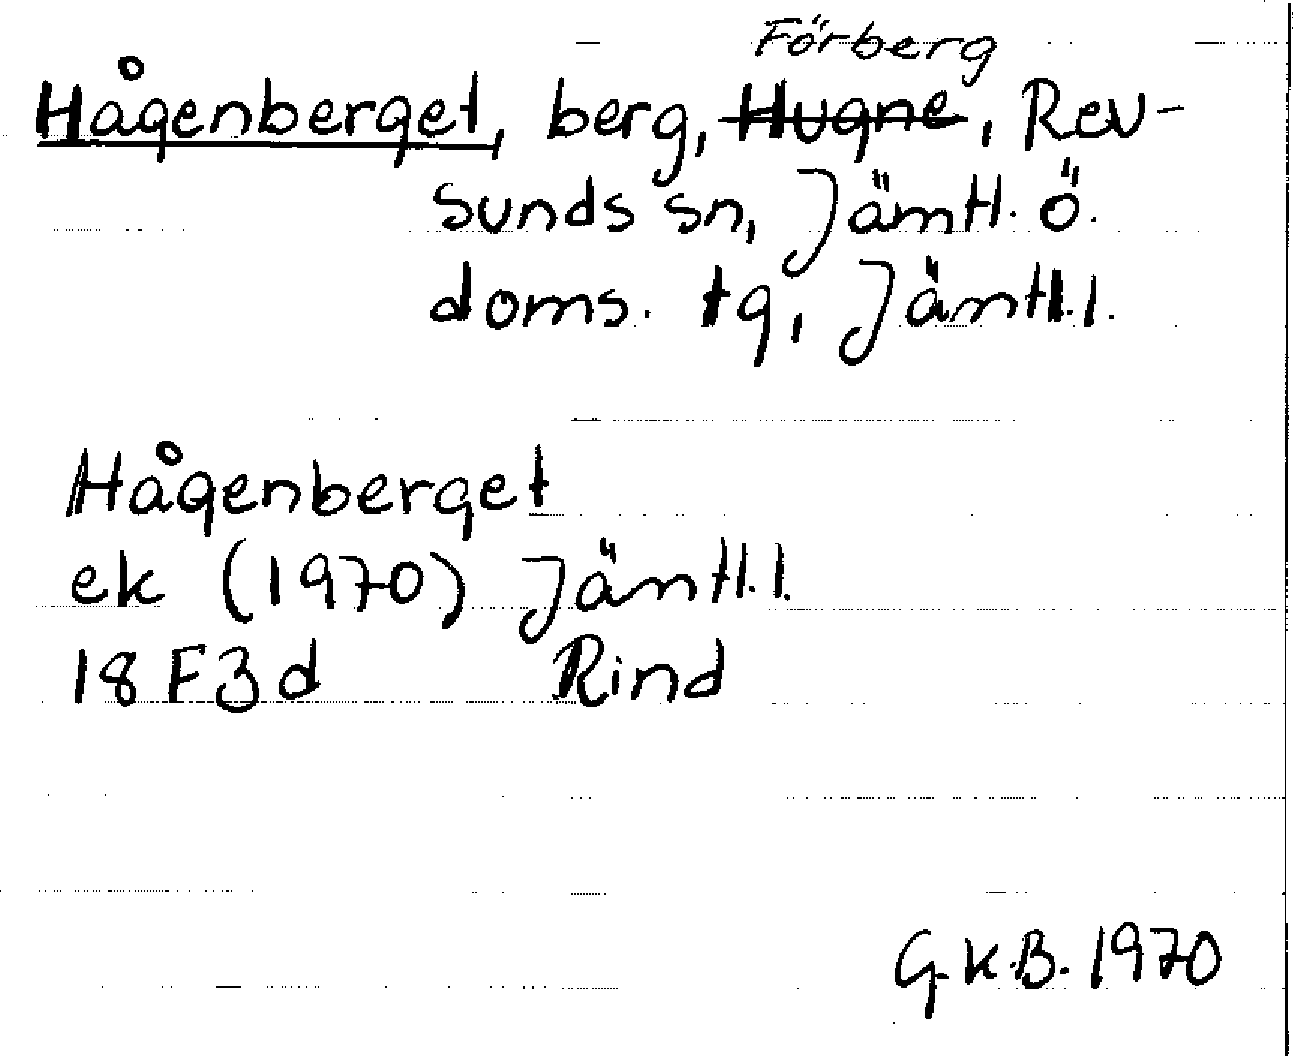 Förberg
Hågenberget, berg, Hugne, Rev-
sunds sn, Jämtl. ö.
doms. tg, Jämtl. l.
Hågenberget
ek (1970) Jämtl. l.
18 F3d Rind
G.K.B. 1970